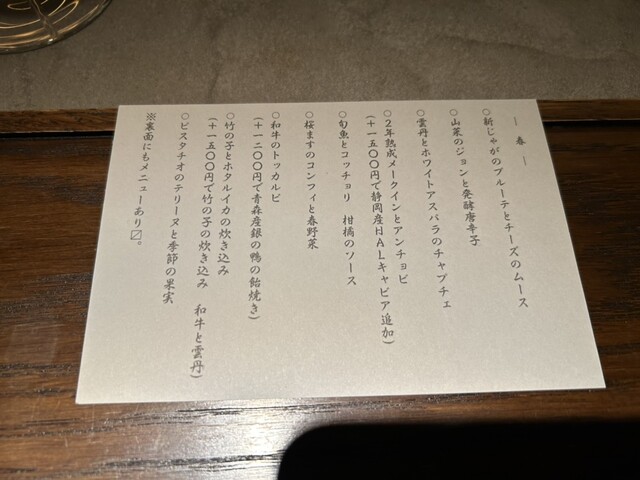 ― 春 ―
○新じゃがのブルーテとチーズのムース
○山菜のジョンと発酵唐辛子
○雲丹とホワイトアスパラのチャプチェ
○2年熟成メークインとアンチョビ
(+一五〇〇円で静岡産HALキャビア追加)
○旬魚とコッチョリ 柑橘のソース
○桜ますのコンフィと春野菜
○和牛のトッカルビ
(+一二〇〇円で青森産銀の鴨の飴焼き)
○竹の子とホタルイカの炊き込み
(+一五〇〇円で竹の子の炊き込み 和牛と雲丹)
○ピスタチオのテリーヌと季節の果実
※裏面にもメニューあり〼。